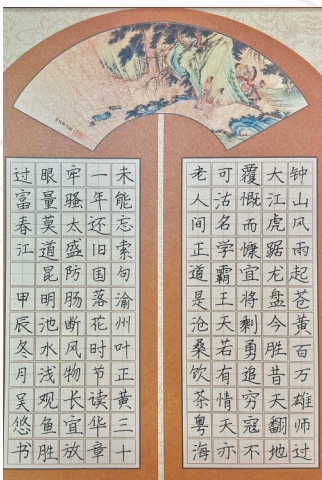 钟山风雨起苍黄百万雄师过
大江虎踞龙盘今胜昔天翻地
覆慨而慷宜将剩勇追穷寇不
可沽名学霸王天若有情天亦
老人间正道是沧桑饮茶粤海
未能忘索句渝州叶正黄三十
一年还旧国落花时节读华章
牢骚太盛防肠断风物长宜放
眼量莫道昆明池水浅观鱼胜
过富春江 甲辰冬月吴悠书